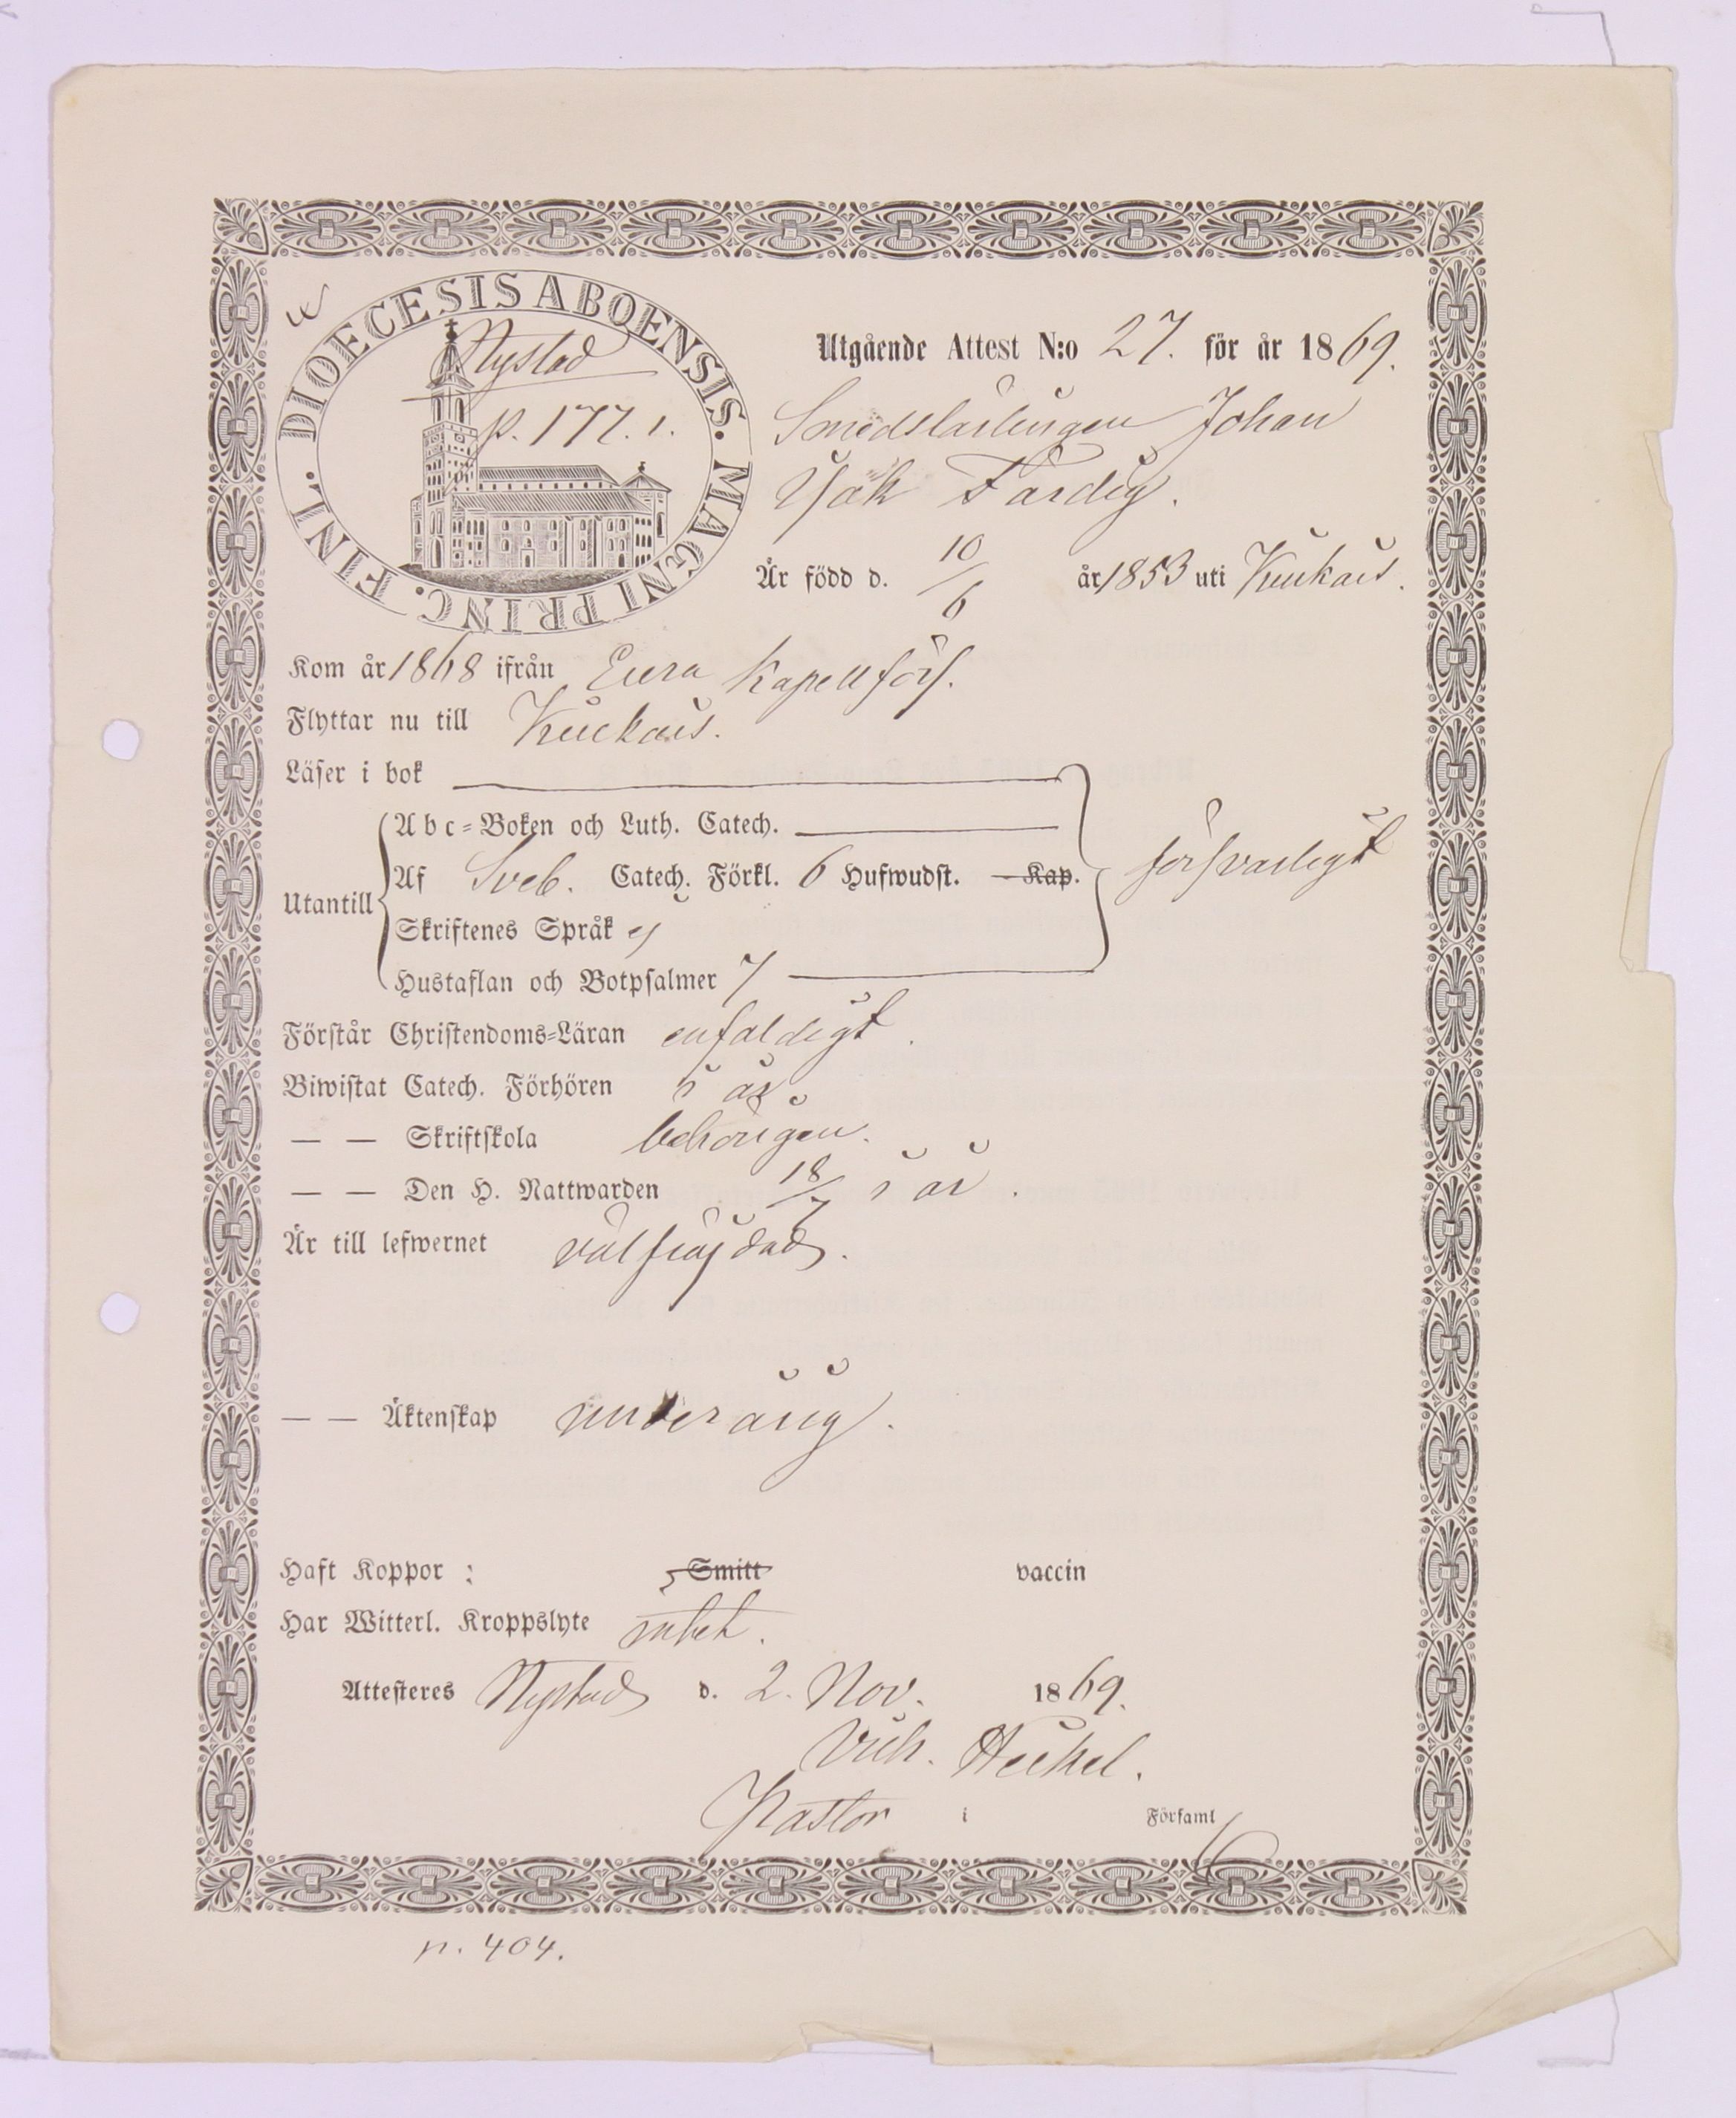 DIOECESIS ABOENSIS. MAGNI PRINC. FINL.
Nystad
p. 177. 1.
Utgående Attest N:o 27. för år 1869.
Smedslärlingen Johan
Isak Färdig.
Är född d. 10/6 år 1853 uti Kiukais.
Kom år 1868 ifrån Eura Kapellförs.
Flyttar nu till Kiukais.
Läser i bok
Abc-Boken och Luth. Catech.
Utantill Af Sveb. Catech. Förkl. 6 Hufwudst. Kap. försvarligt
Skriftenes Språk ej
Hustaflan och Botpsalmer 7
Förstår Christendoms-Läran enfaldigt.
Biwistat Catech. Förhören i år
— — Skriftskola behörigen.
— — Den H. Nattwarden 18/7 i år.
Är till lefwernet välfrägdad.
— — Äktenskap underårig.
Haft Koppor: Smitt vaccin
Har Witterl. Kroppslyte intet.
Attesteres Nystad d. 2. Nov. 1869.
Vilh. Heikel.
Pastor i Församl
n. 404.